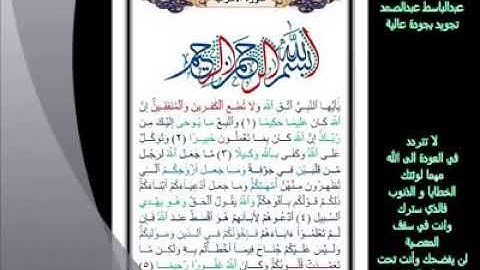 عبدالباسط عبدالصمد
تجويد بجودة عالية
بِسْمِ اللَّهِ الرَّحْمَٰنِ الرَّحِيمِ
يَٰٓأَيُّهَا ٱلنَّبِيُّ ٱتَّقِ ٱللَّهَ وَلَا تُطِعِ ٱلْكَٰفِرِينَ وَٱلْمُنَٰفِقِينَ إِنَّ
ٱللَّهَ كَانَ عَلِيمًا حَكِيمًا (١) وَٱتَّبِعْ مَا يُوحَىٰٓ إِلَيْكَ مِن
رَّبِّكَ إِنَّ ٱللَّهَ كَانَ بِمَا تَعْمَلُونَ خَبِيرًا (٢) وَتَوَكَّلْ
عَلَى ٱللَّهِ وَكَفَىٰ بِٱللَّهِ وَكِيلًا (٣) مَّا جَعَلَ ٱللَّهُ لِرَجُلٍ
مِّن قَلْبَيْنِ فِي جَوْفِهِۦ وَمَا جَعَلَ أَزْوَٰجَكُمُ ٱلَّٰٓـِٔي
تُظَٰهِرُونَ مِنْهُنَّ أُمَّهَٰتِكُمْ وَمَا جَعَلَ أَدْعِيَآءَكُمْ أَبْنَآءَكُمْ
ذَٰلِكُمْ قَوْلُكُم بِأَفْوَٰهِكُمْ وَٱللَّهُ يَقُولُ ٱلْحَقَّ وَهُوَ يَهْدِي
ٱلسَّبِيلَ (٤) ٱدْعُوهُمْ لِءَابَآئِهِمْ هُوَ أَقْسَطُ عِندَ ٱللَّهِ فَإِن
لَّمْ تَعْلَمُوٓا۟ ءَابَآءَهُمْ فَإِخْوَٰنُكُمْ فِي ٱلدِّينِ وَمَوَٰلِيكُمْ
وَلَيْسَ عَلَيْكُمْ جُنَاحٌ فِيمَآ أَخْطَأْتُم بِهِۦ وَلَٰكِن مَّا
تَعَمَّدَتْ قُلُوبُكُمْ وَكَانَ ٱللَّهُ غَفُورًا رَّحِيمًا (٥)
لا تتردد
في العودة الى الله
مهما لوثتك
الخطايا و الذنوب
فالذي سترك
وانت في سقف
المعصية
لن يفضحك وأنت تحت